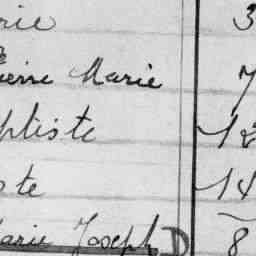 rie 3
Pierre Marie 7
ptiste 12
ste 14
arie Joseph D 8